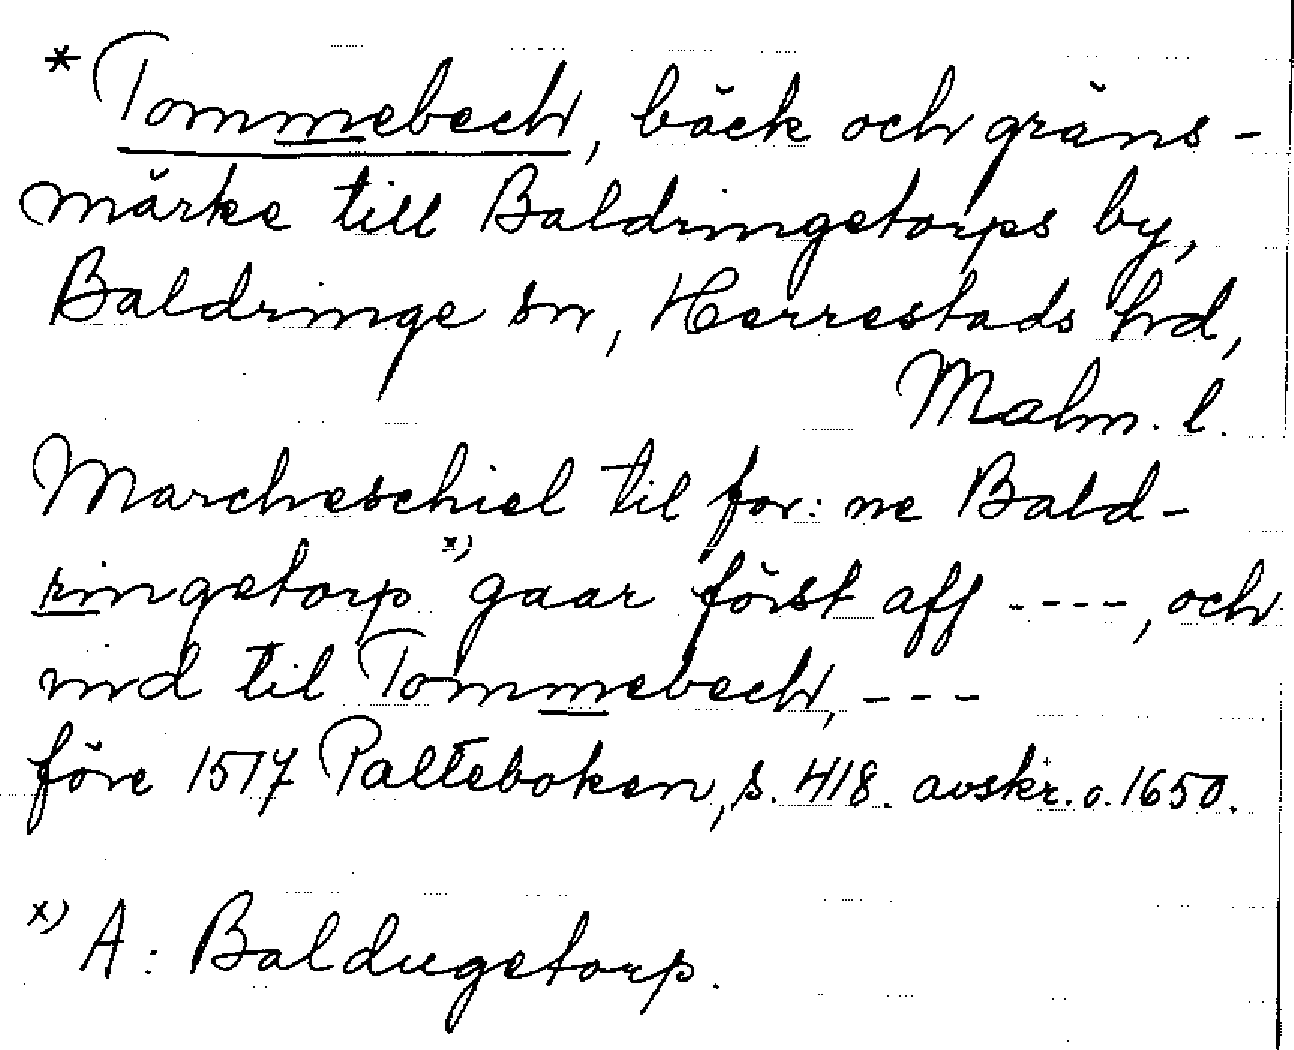 * Tommebech, bäck och gräns-
märke till Baldringetorps by,
Baldringe sn, Herrestads hd,
Malm. l.
Marcheschiel til for: ne Bald-
ringetorp x) gaar först aff ----, och
ind til Tommebech, ---
före 1517 Palteboken, s. 418. avskr. o. 1650.
x) A: Baldugetorp.